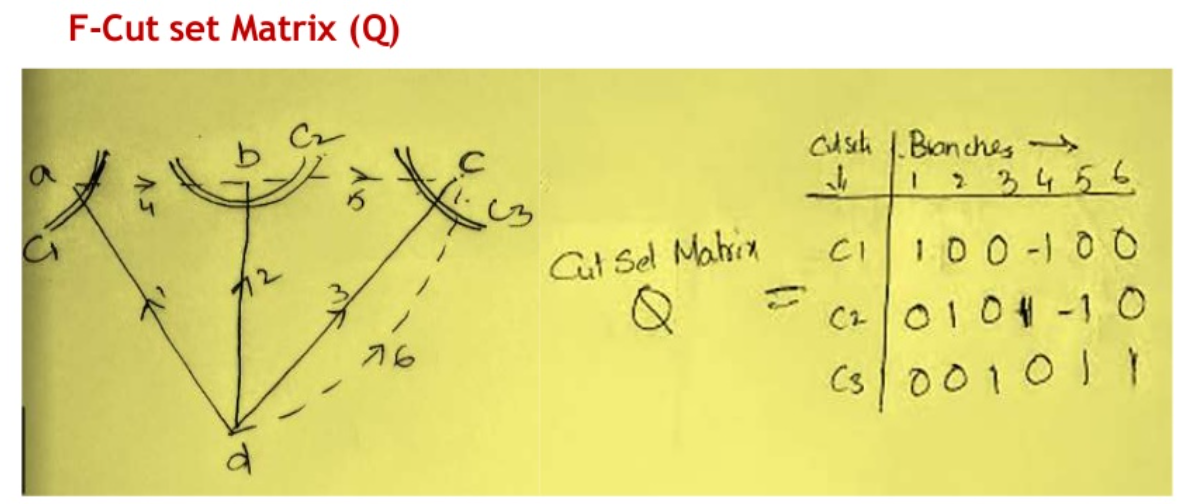 F-Cut set Matrix (Q)
a
b
C2
c
4
5
C1
C3
1
2
3
6
d
Cut Set Matrix
Q
=
Cut sets ↓ | Branches →
1 2 3 4 5 6
C1 1 0 0 -1 0 0
C2 0 1 0 1 -1 0
C3 0 0 1 0 1 1